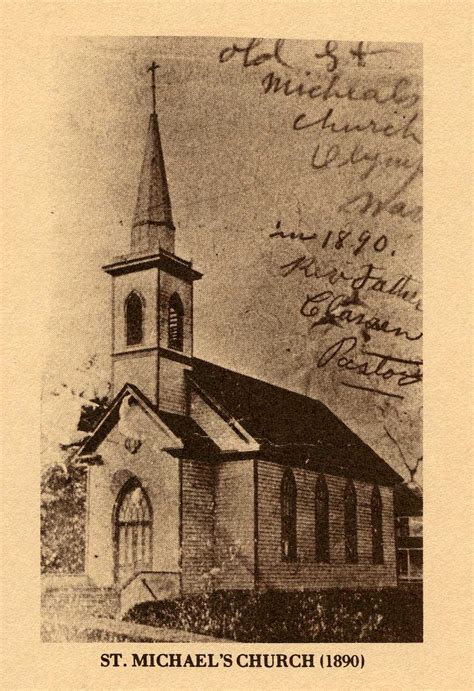 old St
Micheals
church
Olymp
Wan
in 1890.
Rev Father
Classen
Pastor
ST. MICHAEL'S CHURCH (1890)